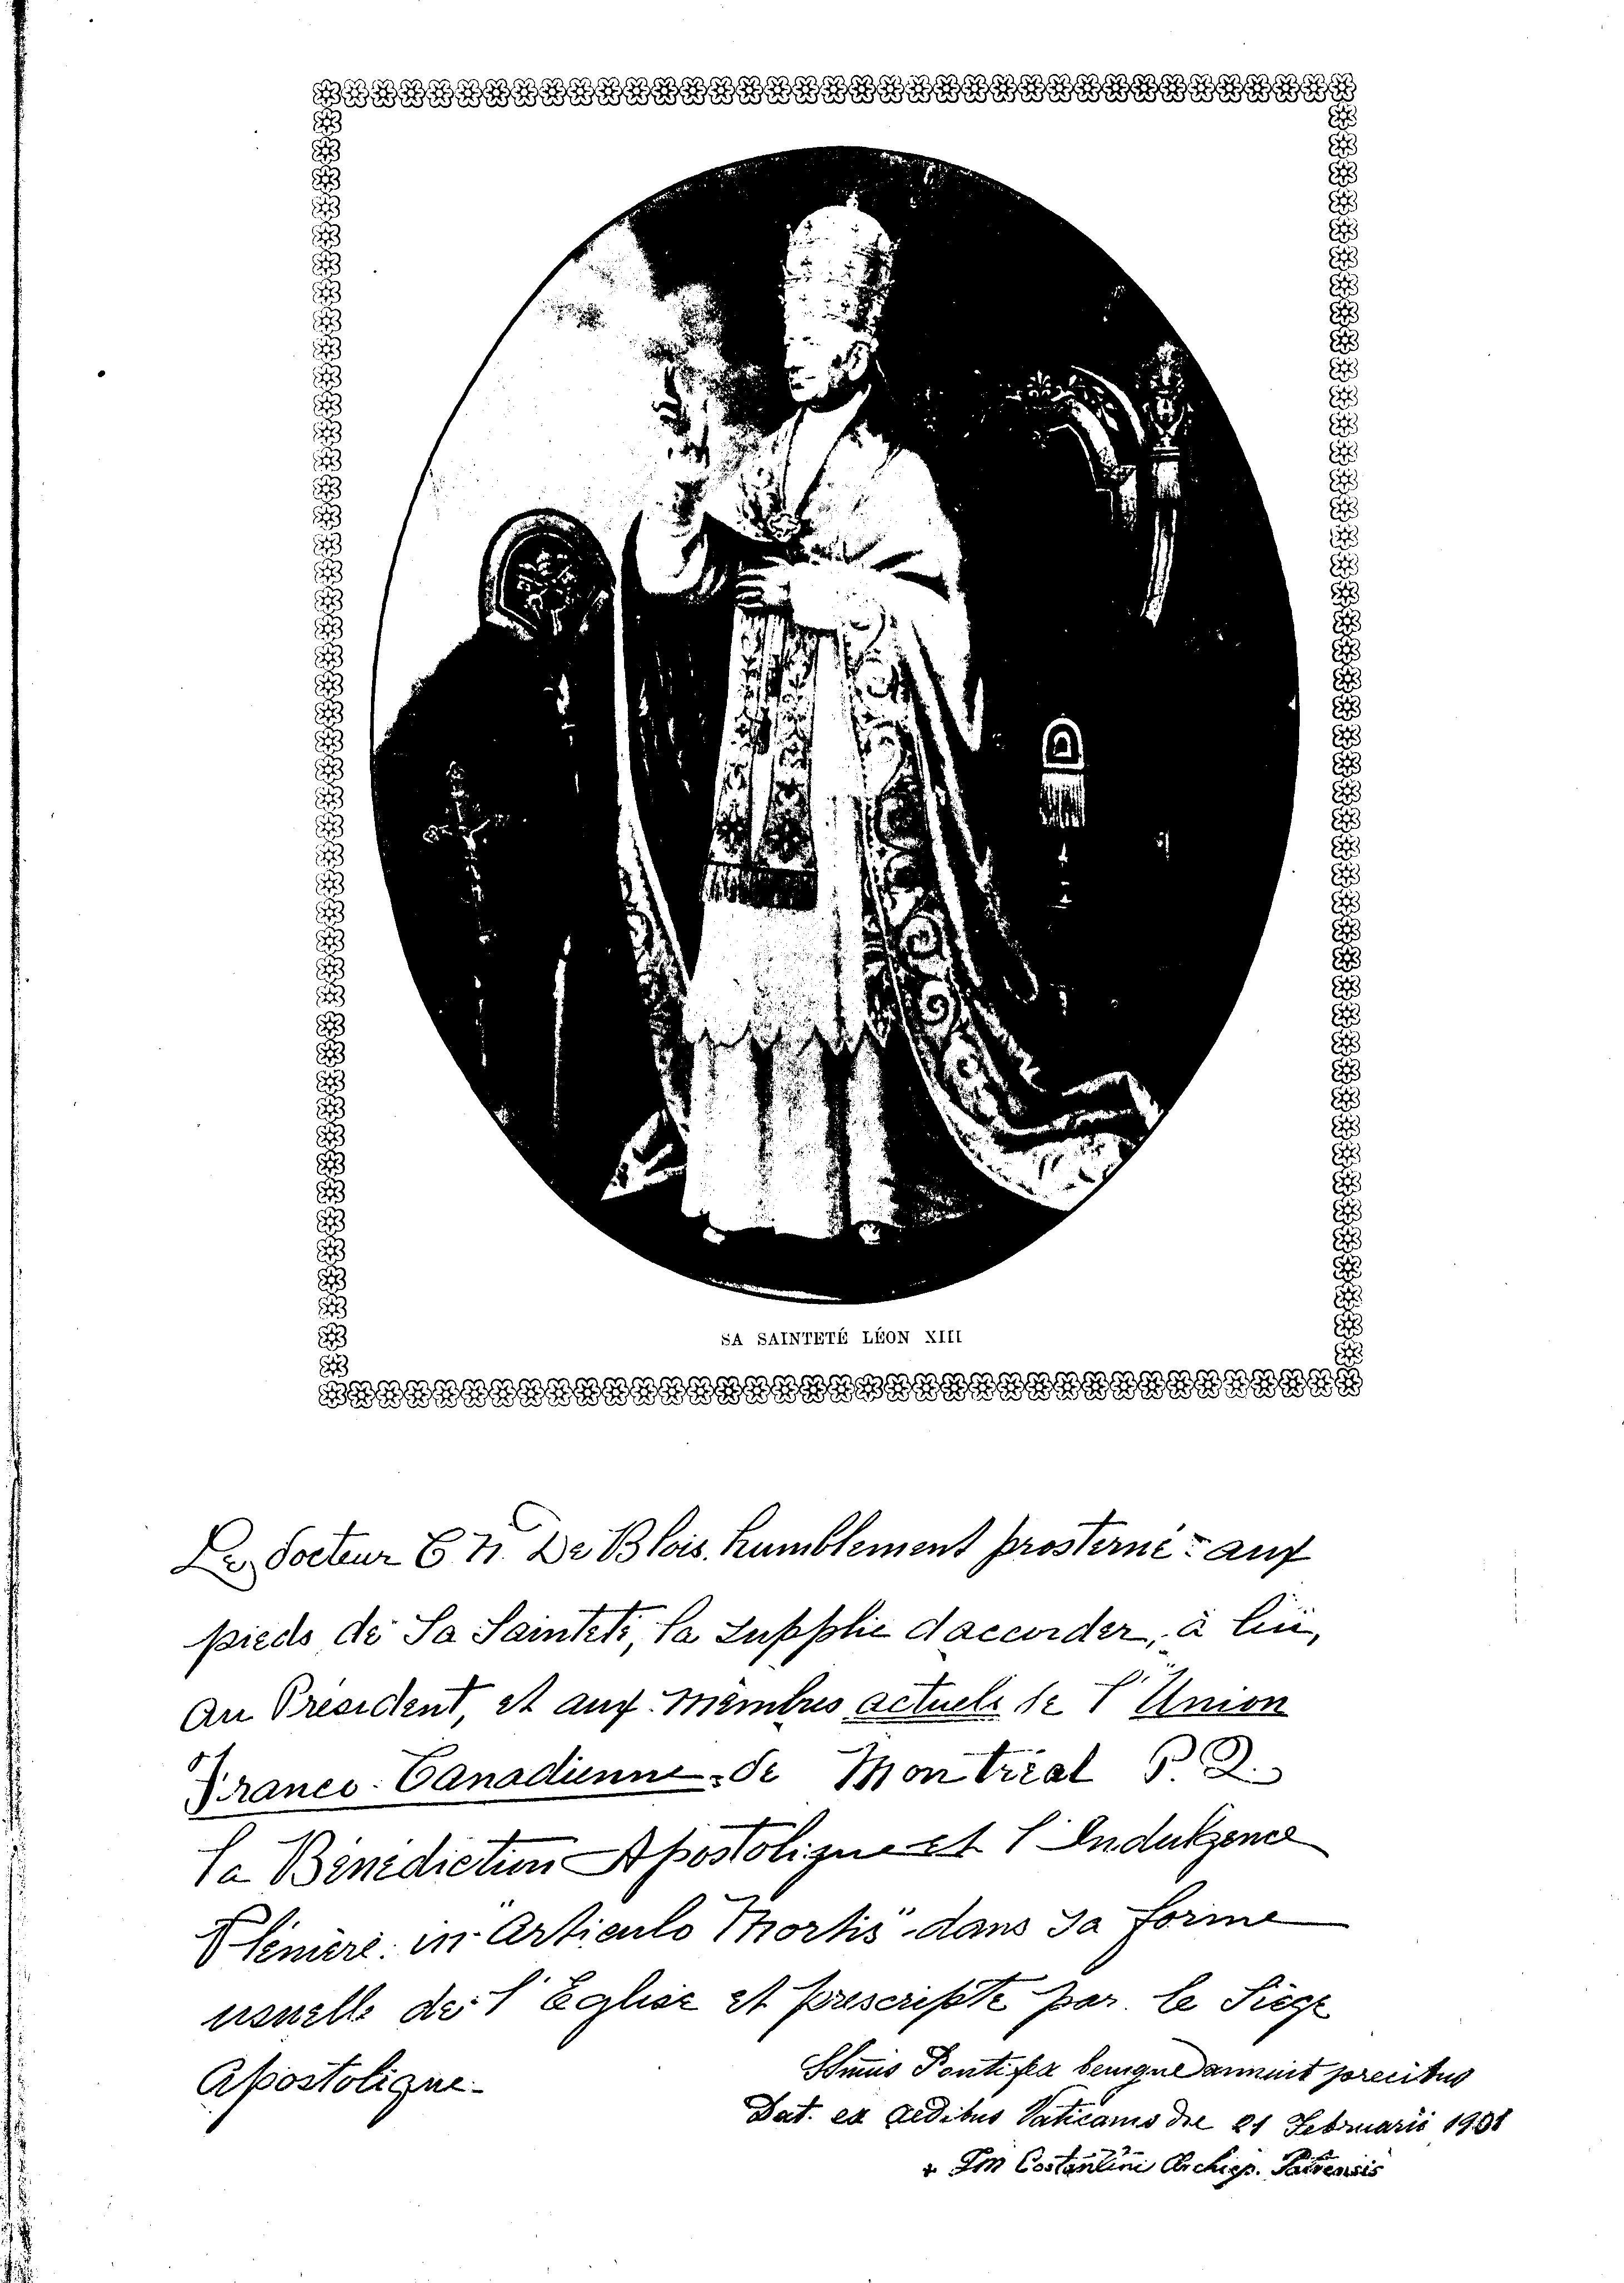 SA SAINTETÉ LÉON XIII
Le Docteur C N. De Blois. humblement prosterné - aux
pieds de Sa Sainteté, la supplie d'accorder, à lui,
au Président, et aux Membres actuels de l'Union
Franco-Canadienne - de Montréal P. Q.
la Bénédiction Apostolique et l'Indulgence
Plénière. in "Articulo Mortis" - dans sa forme
usuelle de l'Eglise et prescripte par le Siège
Apostolique -
Ssmus Pontifex benigne annuit precibus
Dat. ex aedibus Vaticanis die 21 Februarii 1901
+ Costantini Archiep. Patrensis